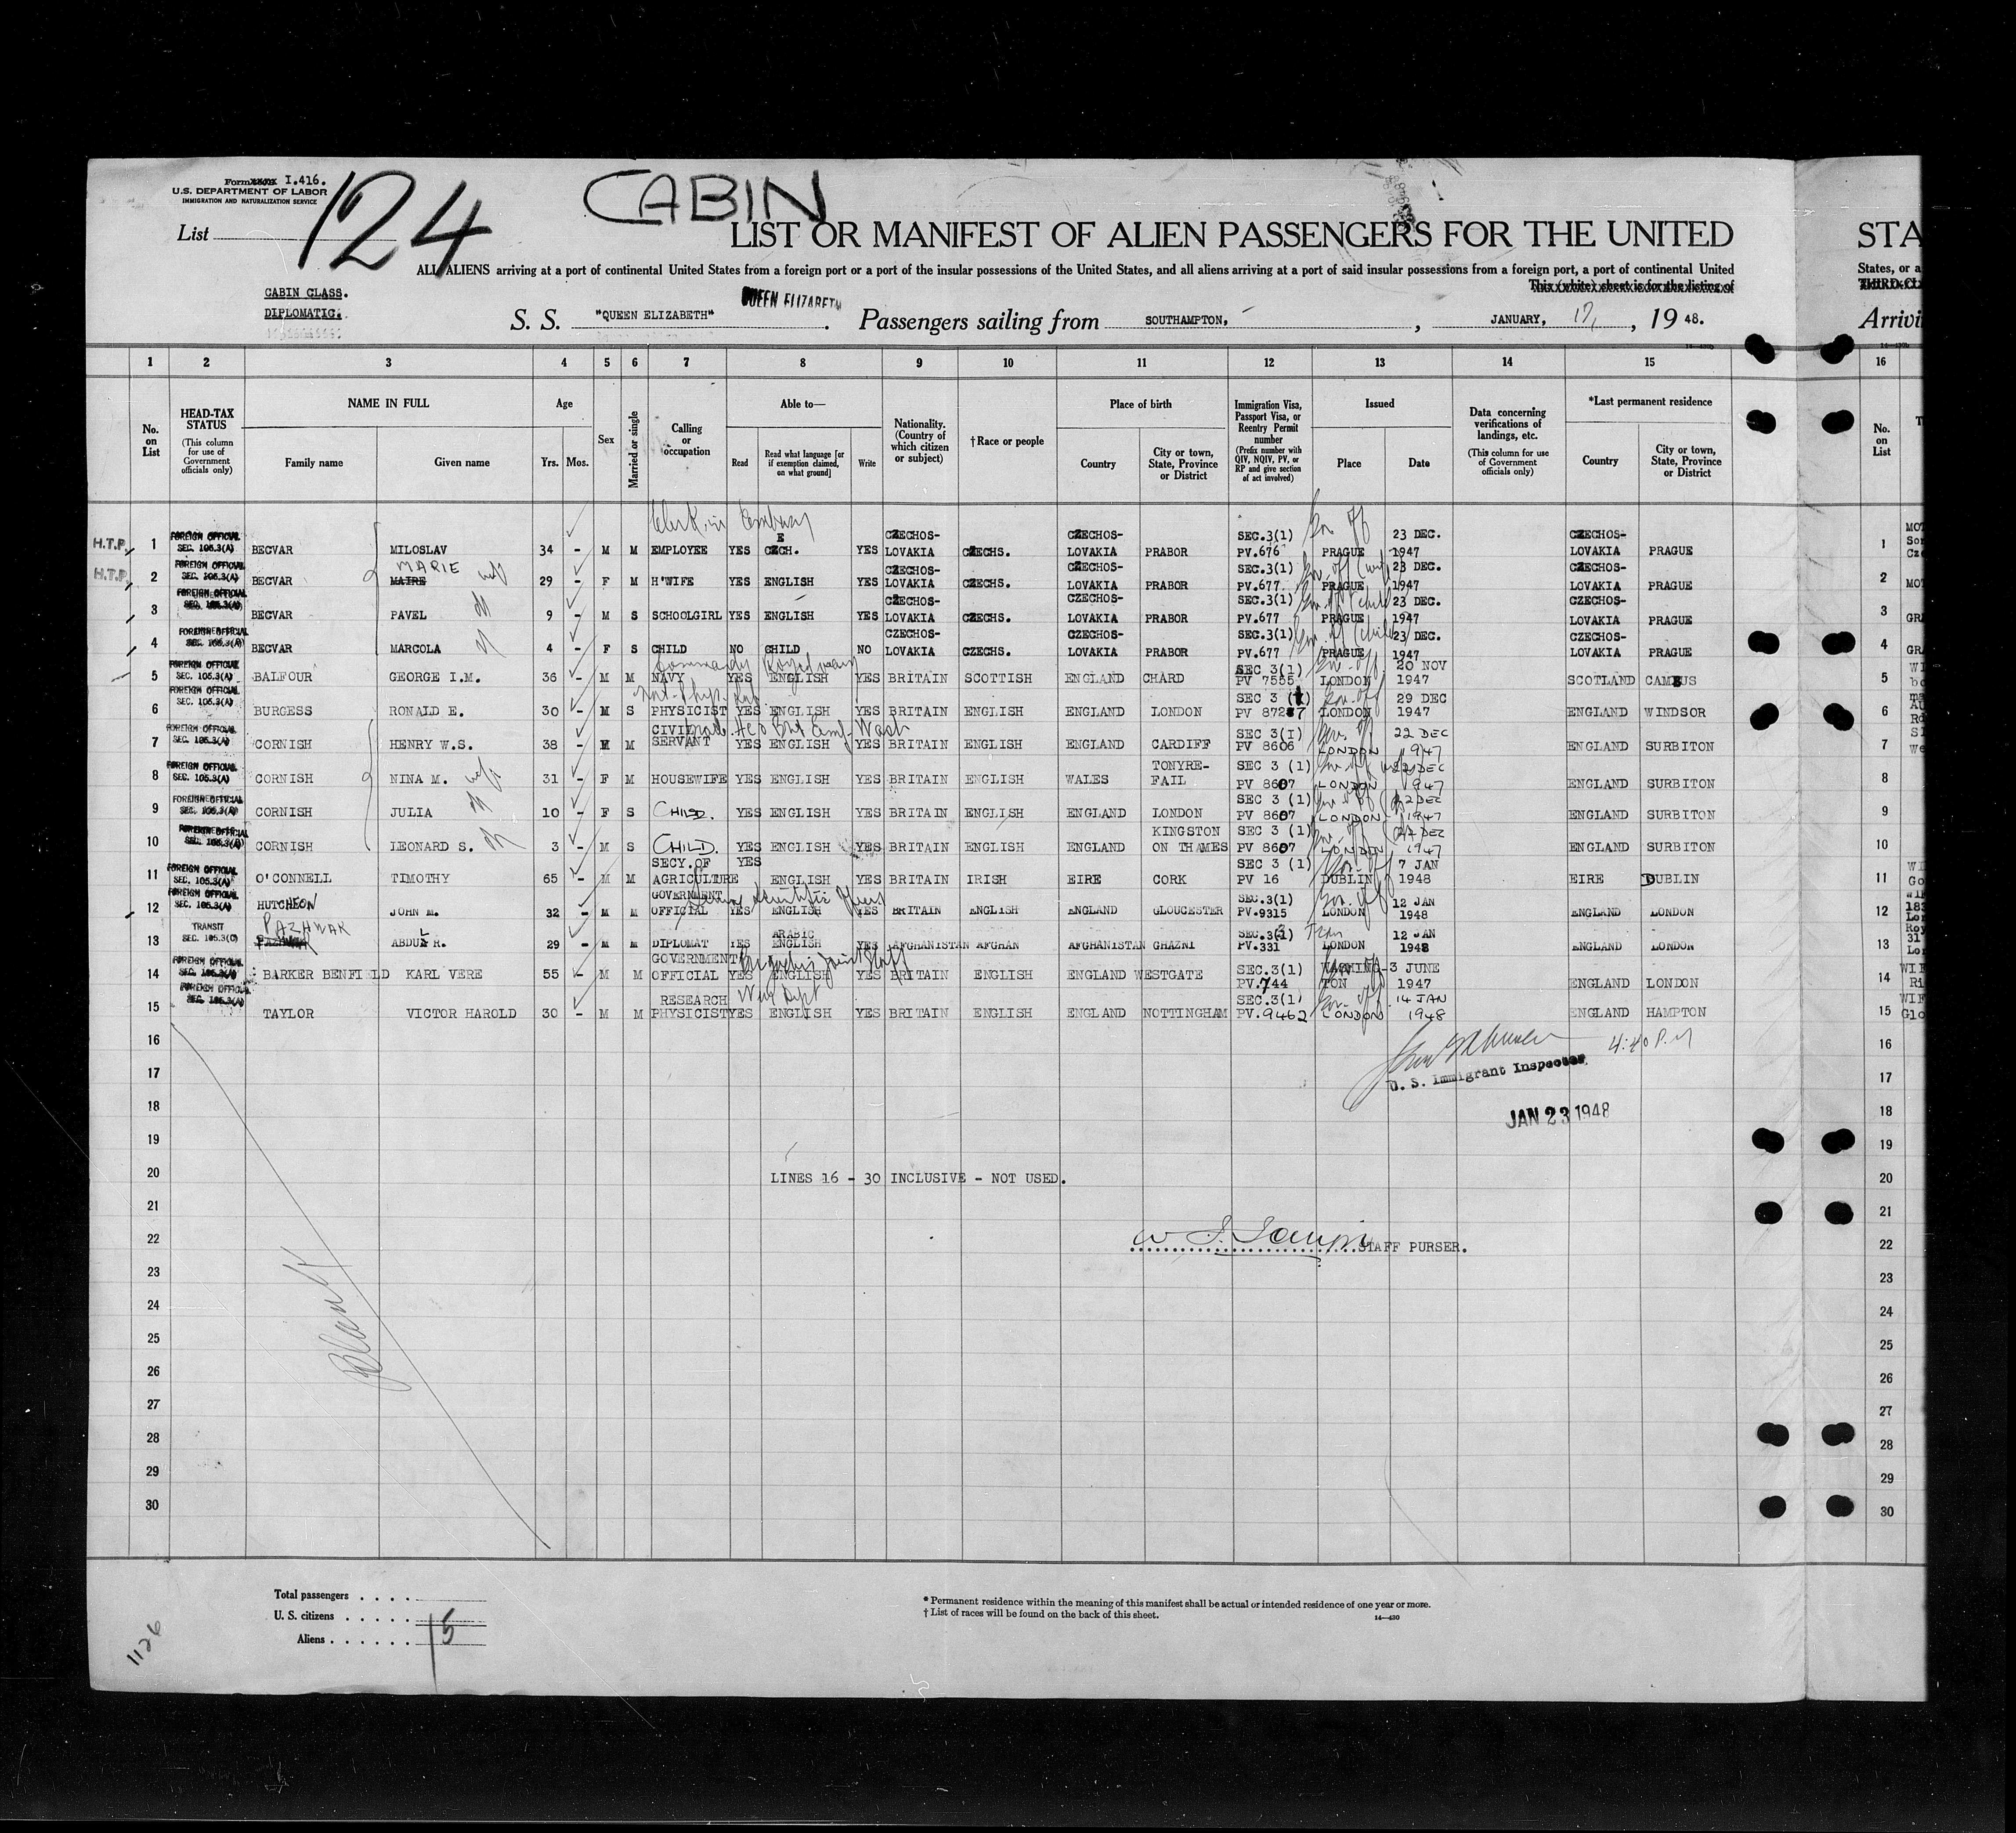 Form I.416.
U.S. DEPARTMENT OF LABOR
IMMIGRATION AND NATURALIZATION SERVICE
List 124
CABIN
LIST OR MANIFEST OF ALIEN PASSENGERS FOR THE UNITED STA
ALL ALIENS arriving at a port of continental United States from a foreign port or a port of the insular possessions of the United States, and all aliens arriving at a port of said insular possessions from a foreign port, a port of continental United States, or a
This (white) sheet is for the listing of
CABIN CLASS.
DIPLOMATIC.
QUEEN ELIZABETH
S. S. "QUEEN ELIZABETH". Passengers sailing from SOUTHAMPTON, , JANUARY, 17, , 19 48.
1 2 3 4 5 6 7 8 9 10 11 12 13 14 15 16
No. on List
HEAD-TAX STATUS (This column for use of Government officials only)
NAME IN FULL Family name Given name
Age Yrs. Mos.
Sex
Married or single
Calling or occupation
Able to— Read Read what language [or if exemption claimed, on what ground] Write
Nationality. (Country of which citizen or subject)
†Race or people
Place of birth Country City or town, State, Province or District
Immigration Visa, Passport Visa, or Reentry Permit number (Prefix number with QIV, NQIV, PV, or RP and give section of act involved)
Issued Place Date
Data concerning verifications of landings, etc. (This column for use of Government officials only)
*Last permanent residence Country City or town, State, Province or District
No. on List
H.T.P. 1 FOREIGN OFFICIAL SEC. 105.3(A) BECVAR MILOSLAV 34 - M M Clerk in Embassy EMPLOYEE YES CZECH. YES CZECHOS-LOVAKIA CZECHS. CZECHOS-LOVAKIA PRABOR SEC.3(1) PV.676 Gov Off PRAGUE 23 DEC. 1947 CZECHOS-LOVAKIA PRAGUE 1
H.T.P. 2 FOREIGN OFFICIAL SEC. 105.3(A) BECVAR MARIE MAIRE wf 29 - F M H'WIFE YES ENGLISH YES CZECHOS-LOVAKIA CZECHS. CZECHOS-LOVAKIA PRABOR SEC.3(1) PV.677 PRAGUE 23 DEC. 1947 CZECHOS-LOVAKIA PRAGUE 2
3 FOREIGN OFFICIAL SEC. 105.3(A) BECVAR PAVEL 9 - M S SCHOOLGIRL YES ENGLISH YES CZECHOS-LOVAKIA CZECHS. CZECHOS-LOVAKIA PRABOR SEC.3(1) PV.677 PRAGUE 23 DEC. 1947 CZECHOS-LOVAKIA PRAGUE 3
4 FOREIGN OFFICIAL SEC. 105.3(A) BECVAR MARCOLA 4 - F S CHILD NO CHILD NO CZECHOS-LOVAKIA CZECHS. CZECHOS-LOVAKIA PRABOR SEC.3(1) PV.677 PRAGUE 23 DEC. 1947 CZECHOS-LOVAKIA PRAGUE 4
5 FOREIGN OFFICIAL SEC. 105.3(A) BALFOUR GEORGE I.M. 36 - M M NAVY YES ENGLISH YES BRITAIN SCOTTISH ENGLAND CHARD SEC 3(1) PV 7555 Gov. off. LONDON 20 NOV 1947 SCOTLAND CAMBUS 5
6 FOREIGN OFFICIAL SEC. 105.3(A) BURGESS RONALD E. 30 - M S PHYSICIST YES ENGLISH YES BRITAIN ENGLISH ENGLAND LONDON SEC 3 (1) PV 8727 Gov. off LONDON 29 DEC 1947 ENGLAND WINDSOR 6
7 FOREIGN OFFICIAL SEC. 105.3(A) CORNISH HENRY W.S. 38 - M M CIVIL SERVANT YES ENGLISH YES BRITAIN ENGLISH ENGLAND CARDIFF SEC 3(1) PV 8606 LONDON 22 DEC 1947 ENGLAND SURBITON 7
8 FOREIGN OFFICIAL SEC. 105.3(A) CORNISH NINA M. wife 31 - F M HOUSEWIFE YES ENGLISH YES BRITAIN ENGLISH WALES TONYRE-FAIL SEC 3 (1) PV 8607 LONDON 22 DEC 1947 ENGLAND SURBITON 8
9 FOREIGN OFFICIAL SEC. 105.3(A) CORNISH JULIA 10 - F S CHILD. YES ENGLISH YES BRITAIN ENGLISH ENGLAND LONDON SEC 3 (1) PV 8607 LONDON 22 DEC 1947 ENGLAND SURBITON 9
10 FOREIGN OFFICIAL SEC. 105.3(A) CORNISH LEONARD S. 3 - M S CHILD. YES ENGLISH YES BRITAIN ENGLISH ENGLAND KINGSTON ON THAMES SEC 3 (1) PV 8607 LONDON 22 DEC 1947 ENGLAND SURBITON 10
11 FOREIGN OFFICIAL SEC. 105.3(A) O'CONNELL TIMOTHY 65 - M M SECY. OF AGRICULTURE YES ENGLISH YES BRITAIN IRISH EIRE CORK SEC 3 (1) PV 16 Gov. off DUBLIN 7 JAN 1948 EIRE DUBLIN 11
12 FOREIGN OFFICIAL SEC. 105.3(A) HUTCHEON JOHN M. 32 - M M GOVERMENT OFFICIAL YES ENGLISH YES BRITAIN ENGLISH ENGLAND GLOUCESTER SEC.3(1) PV.9315 Gov. Off LONDON 12 JAN 1948 ENGLAND LONDON 12
13 TRANSIT SEC. 105.3(C) PAZHWAK ABDUL R. 29 - M M DIPLOMAT YES ARABIC ENGLISH YES AFGHANISTAN AFGHAN AFGHANISTAN GHAZNI SEC.3(3) PV.331 Tran LONDON 12 JAN 1948 ENGLAND LONDON 13
14 FOREIGN OFFICIAL SEC. 105.3(A) BARKER BENFIELD KARL VERE 55 - M M GOVERNMENT OFFICIAL YES ENGLISH YES BRITAIN ENGLISH ENGLAND WESTGATE SEC.3(1) PV.744 WASHING-TON 3 JUNE 1947 ENGLAND LONDON 14
15 FOREIGN OFFICIAL SEC. 105.3(A) TAYLOR VICTOR HAROLD 30 - M M RESEARCH PHYSICIST YES ENGLISH YES BRITAIN ENGLISH ENGLAND NOTTINGHAM SEC.3(1) PV.9462 Gov. off LONDON 14 JAN 1948 ENGLAND HAMPTON 15
16 4:40 P.M 16
17 U. S. Immigrant Inspector 17
18 JAN 23 1948 18
19 19
20 LINES 16 - 30 INCLUSIVE - NOT USED. 20
21 21
22 STAFF PURSER. 22
23 23
24 24
25 Blank 25
26 26
27 27
28 28
29 29
30 30
Total passengers . . . .
U. S. citizens . . . . .
Aliens . . . . . . 15
* Permanent residence within the meaning of this manifest shall be actual or intended residence of one year or more.
† List of races will be found on the back of this sheet.
14—430
1126